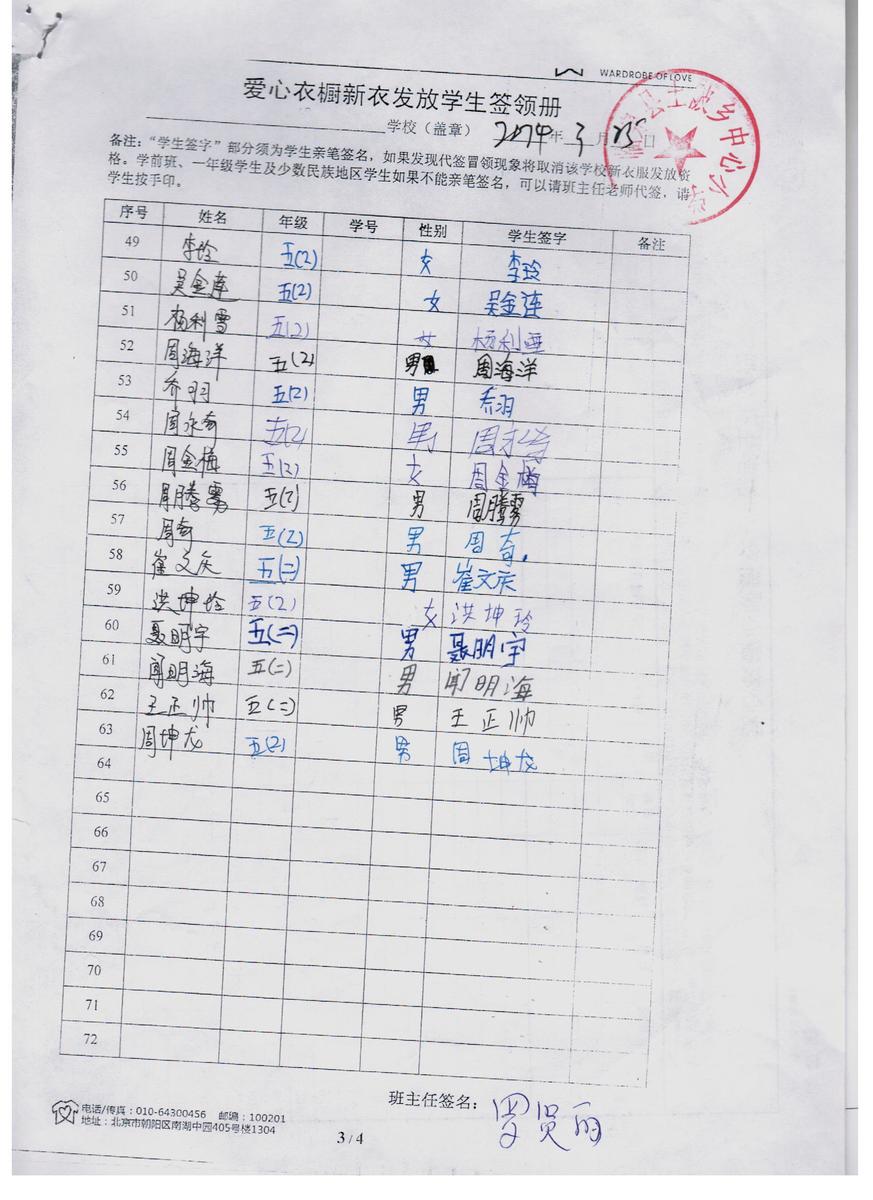 WARDROBE OF LOVE
爱心衣橱新衣发放学生签领册
学校（盖章） 2014年 3月 25日
备注：“学生签字”部分须为学生亲笔签名，如果发现代签冒领现象将取消该学校新衣服发放资
格。学前班、一年级学生及少数民族地区学生如果不能亲笔签名，可以请班主任老师代签，请
学生按手印。
乡中心小学
序号 姓名 年级 学号 性别 学生签字 备注
49 李玲 五(2) 女 李玲
50 吴金莲 五(2) 女 吴金连
51 杨利雪 五(2) 女 杨利雪
52 周海洋 五(2) 男 周海洋
53 乔羽 五(2) 男 乔羽
54 周永奇 五(2) 男 周永奇
55 周金梅 五(2) 女 周金梅
56 周腾雾 五(2) 男 周腾雾
57 周奇 五(2) 男 周奇
58 崔文庆 五(二) 男 崔文庆
59 洪坤玲 五(2) 女 洪坤玲
60 聂明宇 五(二) 男 聂明宇
61 闻明海 五(二) 男 闻明海
62 王正帅 五(二) 男 王正帅
63 周坤龙 五(2) 男 周坤龙
64
65
66
67
68
69
70
71
72
班主任签名：罗贤丽
电话/传真：010-64300456 邮编：100201
地址：北京市朝阳区南湖中园405号楼1304
3 / 4